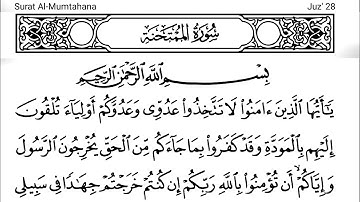 Surat Al-Mumtahana Juz' 28
سُورَةُ الْمُمْتَحِنَةِ
بِسْمِ اللَّهِ الرَّحْمَٰنِ الرَّحِيمِ
يَٰٓأَيُّهَا ٱلَّذِينَ ءَامَنُوا۟ لَا تَتَّخِذُوا۟ عَدُوِّى وَعَدُوَّكُمْ أَوْلِيَآءَ تُلْقُونَ
إِلَيْهِم بِٱلْمَوَدَّةِ وَقَدْ كَفَرُوا۟ بِمَا جَآءَكُم مِّنَ ٱلْحَقِّ يُخْرِجُونَ ٱلرَّسُولَ
وَإِيَّاكُمْ ۙ أَن تُؤْمِنُوا۟ بِٱللَّهِ رَبِّكُمْ إِن كُنتُمْ خَرَجْتُمْ جِهَٰدًا فِى سَبِيلِى